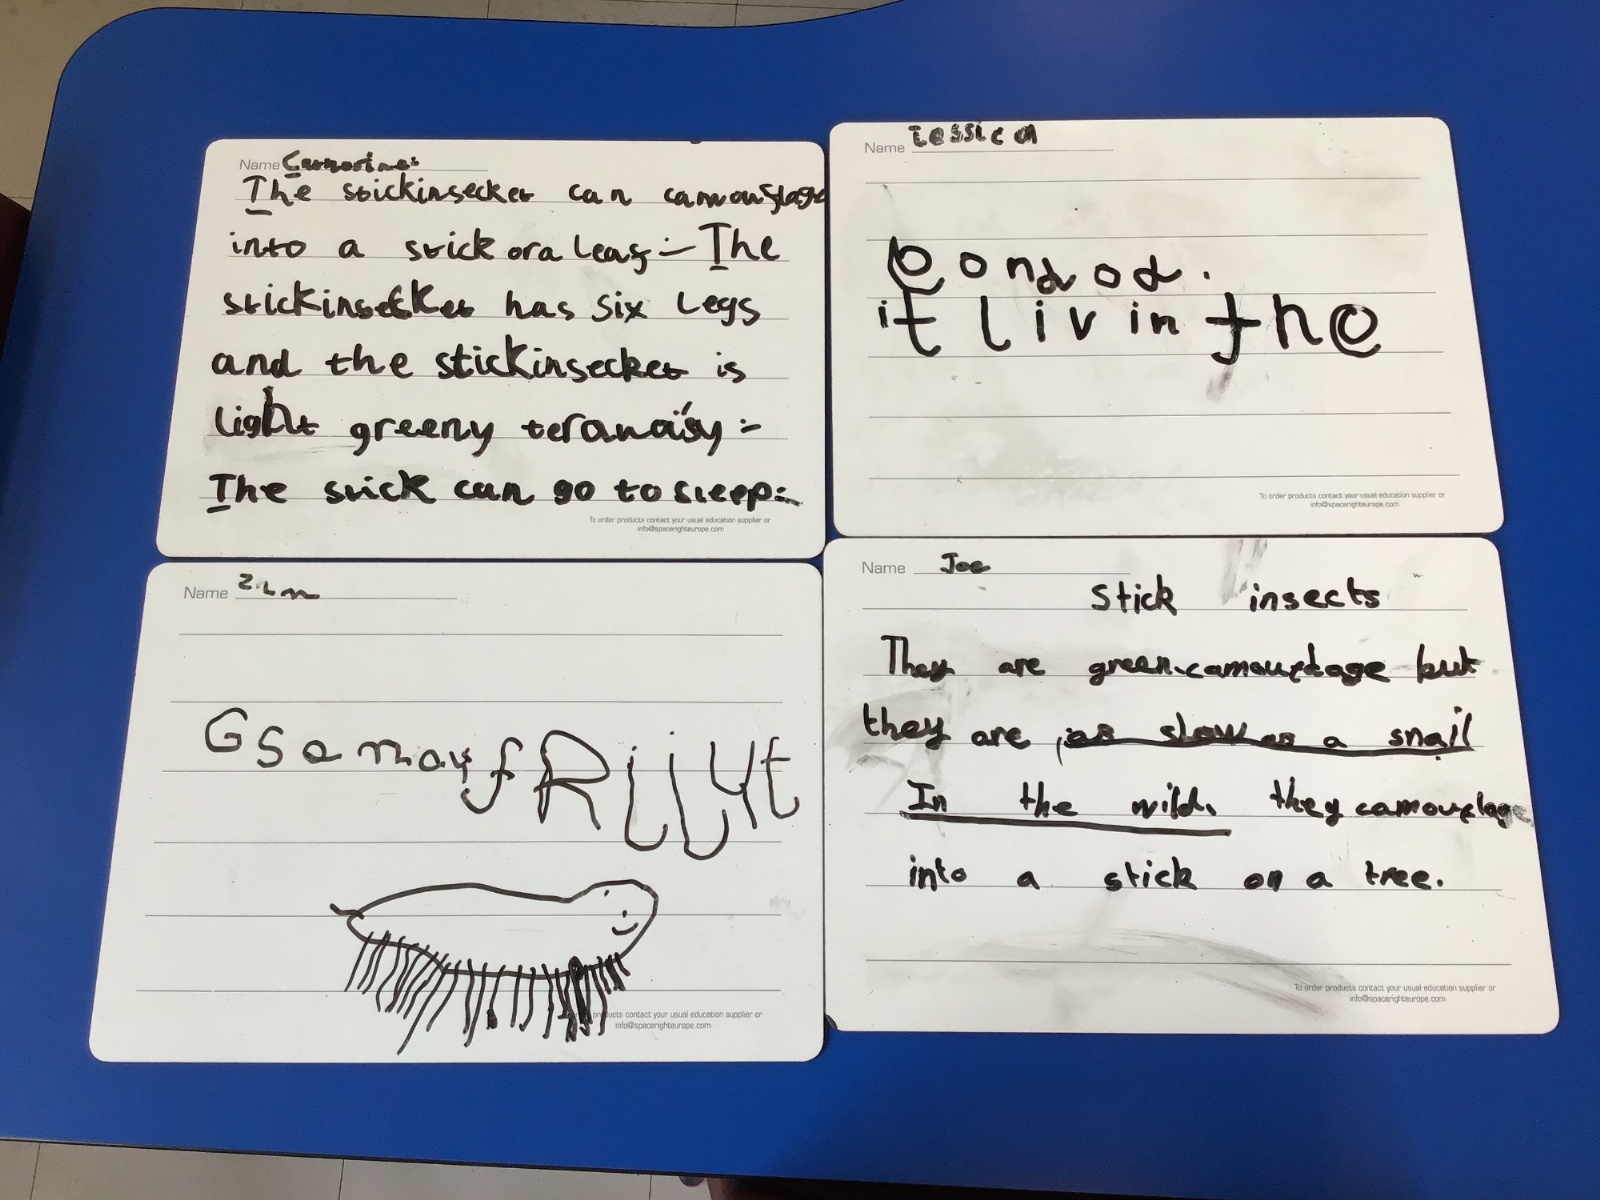 Name
The stickinsecket can camouflage
into a stick or a leaf:- The
stickinsecket has six legs
and the stickinsecket is
light greeny
The stick can go to sleep:-
To order products contact your usual education supplier or
info@spacerighteurope.com
Name Jessica
it liv in the
To order products contact your usual education supplier or
info@spacerighteurope.com
Name
products contact your usual education supplier or
info@spacerighteurope.com
Name Joe
Stick insects
They are green camouflage but
they are as slow as a snail
In the wild, they camouflage
into a stick on a tree.
To order products contact your usual education supplier or
info@spacerighteurope.com